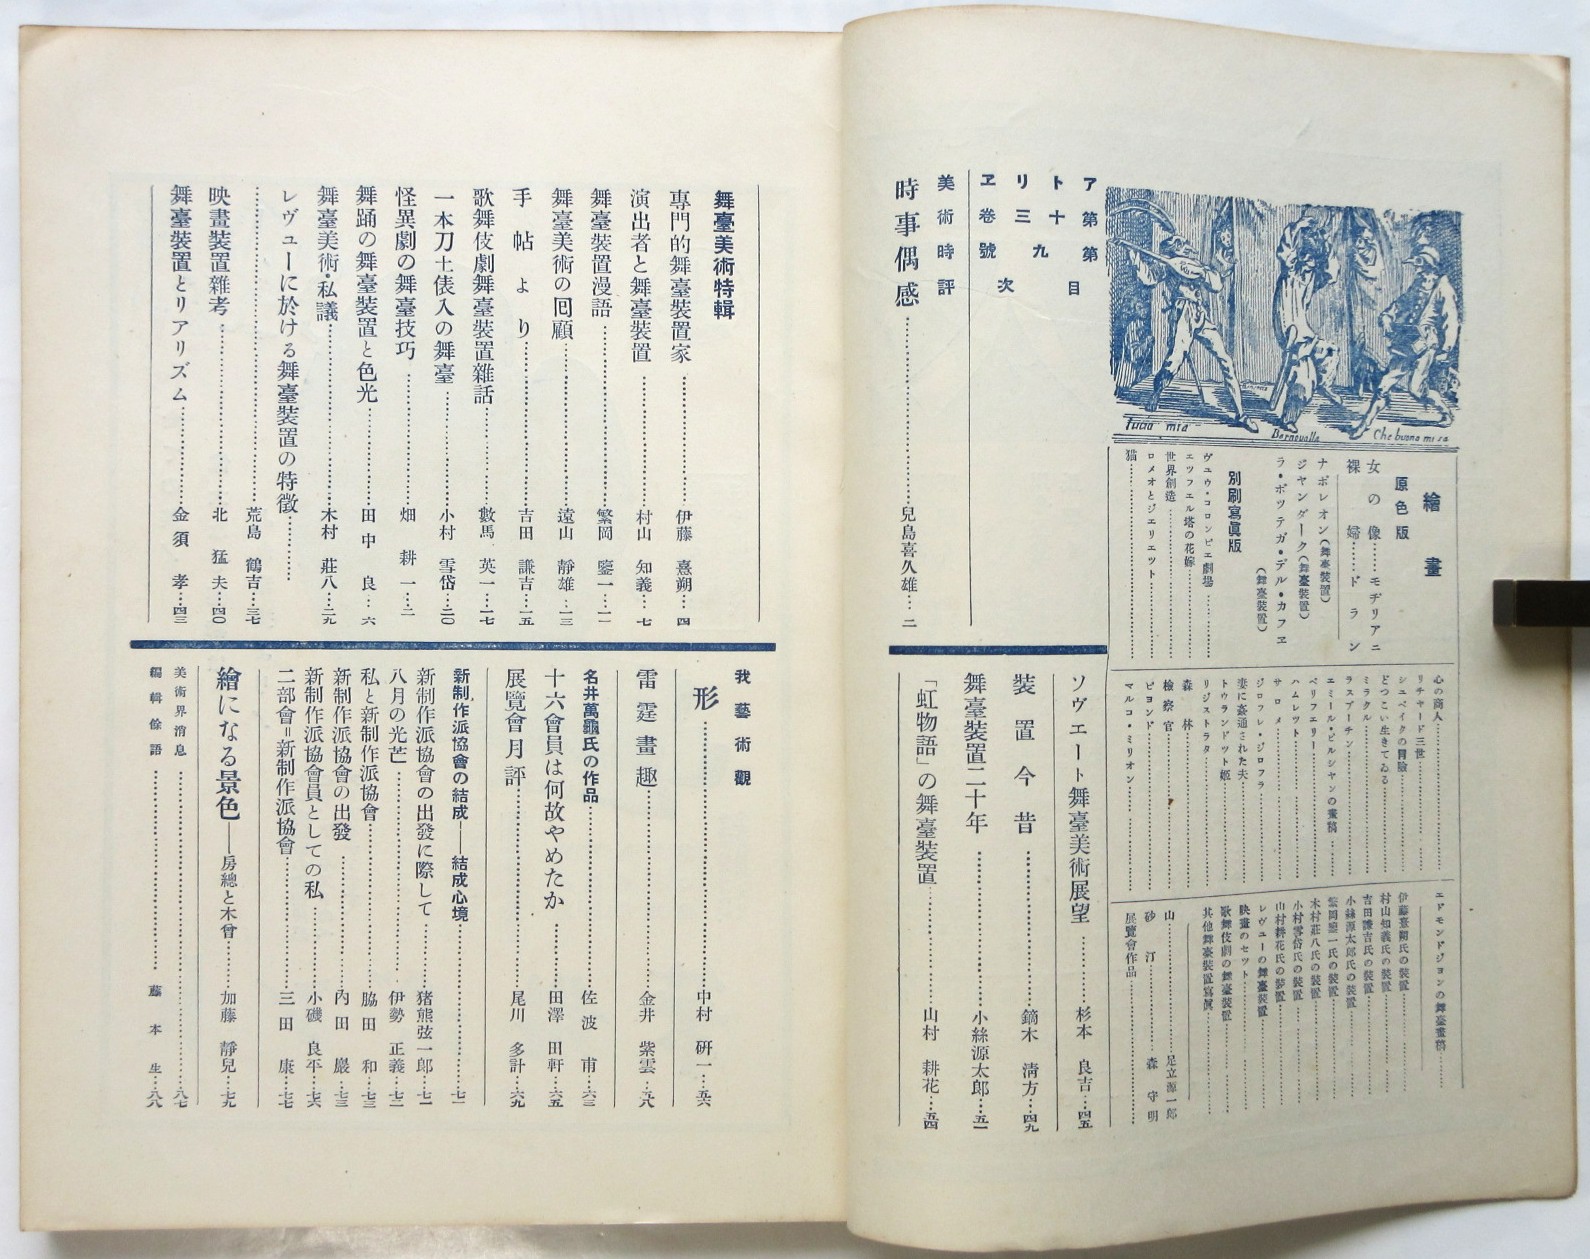 Fucia mia
Che buona mi sa
アトリヱ
第十三卷
第九號
目次
美術時評
時事偶感……兒島喜久雄…二
繪畫
原色版
女の像……モヂリアニ
裸婦……ドラン
ナポレオン(舞臺裝置)
ジャンダーク(舞臺裝置)
ラ・ボッテガ・デル・カフエ(舞臺裝置)
別刷寫眞版
ヴユウ・コロンビエ劇場
エツフエル塔の花嫁
世界創造
ロメオとジエリエツト
猫
心の商人
リチヤード三世
シユベイクの冒險
どつこい生きてゐる
ミラクル
ラスプーチン
エミール・ピルシヤンの畫稿
ペリフエリー
ハムレツト
サロメ
ジロフレ・ジロフラ
妻に姦通された夫
トウランドツト姬
リジストラタ
森林
檢察官
ビヨンド
マルコ・ミリオン
エドモンドジヨンの舞臺畫稿
伊藤熹朔氏の裝置
村山知義氏の裝置
吉田謙吉氏の裝置
小絲源太郎氏の裝置
繁岡鑒一氏の裝置
木村莊八氏の裝置
小村雪岱氏の裝置
山村耕花氏の裝置
レヴユーの舞臺裝置
映畫のセツト
歌舞伎劇の舞臺裝置
其他舞臺裝置寫眞
山……足立源一郎
砂汀……森守明
展覽會作品
ソヴエート舞臺美術展望……杉本良吉…四五
裝置今昔……鏑木淸方…四九
舞臺裝置二十年……小絲源太郎…五一
「虹物語」の舞臺裝置……山村耕花…五四
舞臺美術特輯
專門的舞臺裝置家……伊藤熹朔…四
演出者と舞臺裝置……村山知義…七
舞臺裝置漫語……繁岡鑒一…一一
舞臺美術の囘顧……遠山靜雄…一三
手帖より……吉田謙吉…一五
歌舞伎劇舞臺裝置雜話……數馬英一…一七
一本刀土俵入の舞臺……小村雪岱…二〇
怪異劇の舞臺技巧……畑耕一…二
舞踊の舞臺裝置と色光……田中良…六
舞臺美術・私議……木村莊八…二九
レヴユーに於ける舞臺裝置の特徵……
……荒島鶴吉…三七
映畫裝置雜考……北猛夫…四〇
舞臺裝置とリアリズム……金須孝…四三
我藝術觀
形……中村硏一…五六
雷霆畫趣……金井紫雲…五八
名井萬龜氏の作品……佐波甫…六三
十六會員は何故やめたか……田澤田軒…六五
展覽會月評……尾川多計…六九
新制作派協會の結成――結成心境……七一
新制作派協會の出發に際して……猪熊弦一郎…七一
八月の光芒……伊勢正義…七二
私と新制作派協會……脇田和…七三
新制作派協會の出發……內田巖…七三
新制作派協會員としての私……小磯良平…七六
二部會=新制作派協會……三田康…七七
繪になる景色――房總と木曾……加藤靜兒…七九
美術界消息……八七
編輯餘語……藤本生…八八